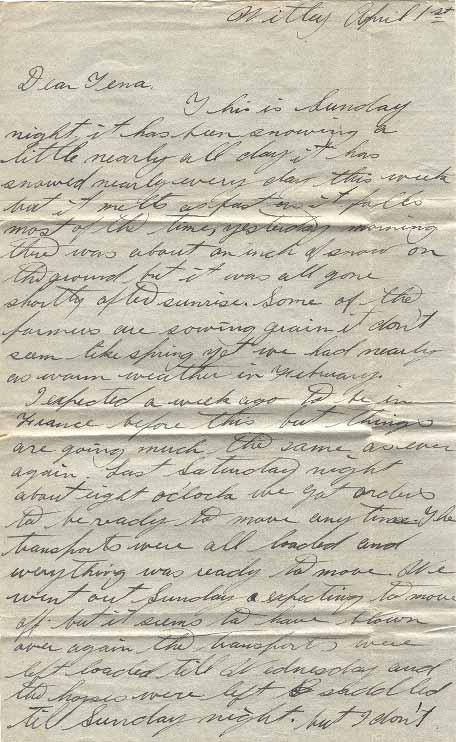 Witley April 1st
Dear Tena.
This is Sunday
night, it has been snowing a
little nearly all day it has
snowed nearly every day this week
but it melts as fast as it falls
most of the time, yesterday morning
there was about an inch of snow on
the ground but it was all gone
shortly after sunrise. Some of the
farmers are sowing grain it don't
seem like spring yet we had nearly
as warm weather in February.
I expected a week ago to be in
France before this but things
are going much the same as ever
again. Last Saturday night
about eight oclock we got orders
to be ready to move any time. The
transports were all loaded and
everything was ready to move. We
went out Sunday expecting to move
off but it seems to have blown
over again the transports were
left loaded till Wednesday and
the horses were left saddled
till Sunday night. but I don't